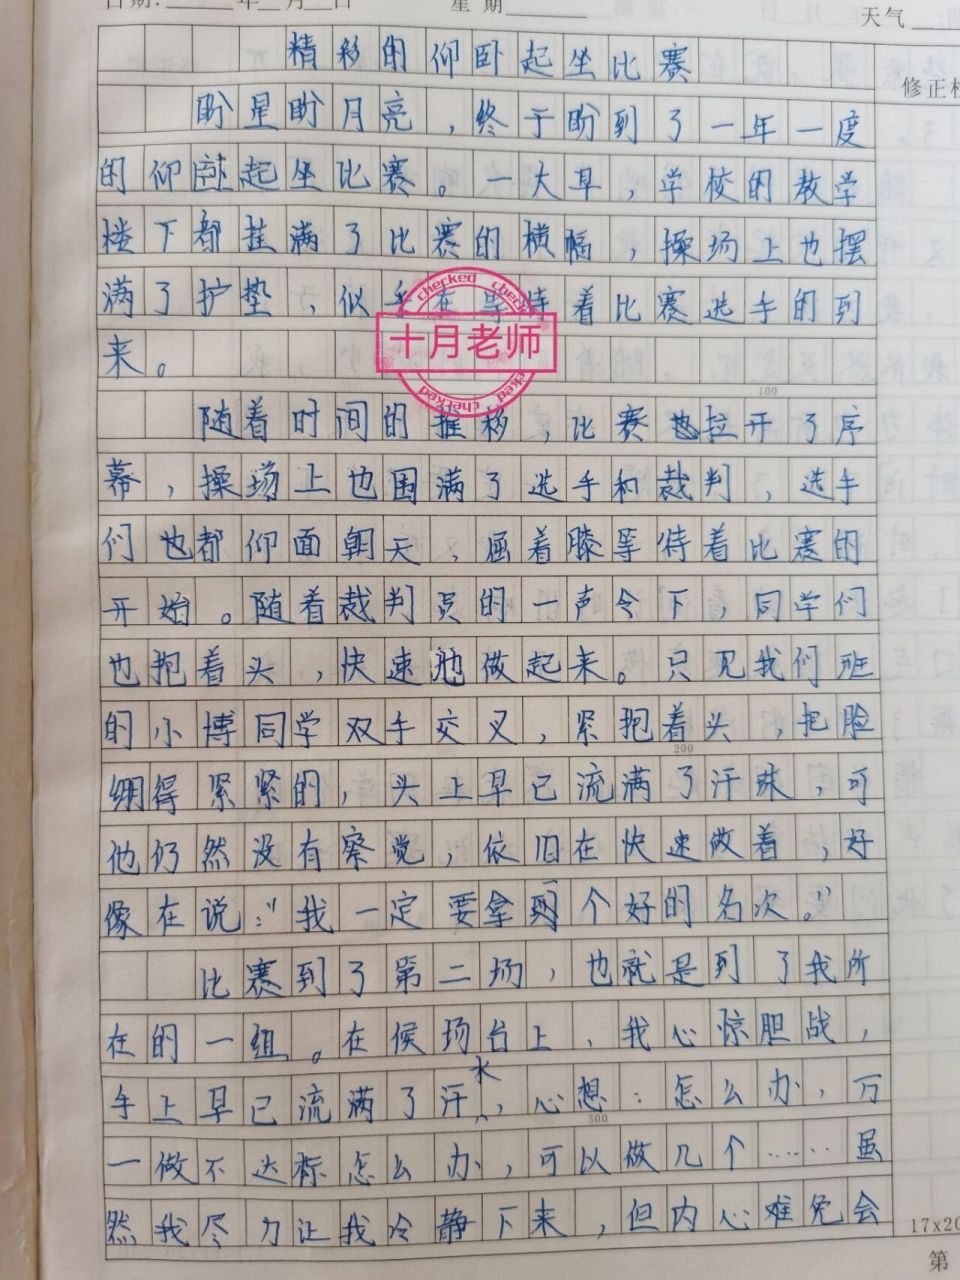 日期:______年__月__日 星 期______ 天气
精移的仰卧起坐比赛
修正栏
盼星盼月亮，终于盼到了一年一度
的仰卧起坐比赛。一大早，学校的教学
楼下都挂满了比赛的横幅，操场上也摆
满了护垫，似乎在等待着比赛选手的到
来。
checked
十月老师
checked
100
随着时间的推移，比赛也拉开了序
幕，操场上也围满了选手和裁判，选手
们也都仰面朝天，屈着膝等待着比赛的
开始。随着裁判员的一声令下，同学们
也抱着头，快速地做起来。只见我们班
的小博同学双手交叉，紧抱着头，把脸
200
绷得紧紧的，头上早已流满了汗珠，可
他仍然没有察觉，依旧在快速做着，好
像在说：“我一定要拿到个好的名次。”
比赛到了第二场，也就是到了我所
在的一组。在候场台上，我心惊胆战，
手上早已流满了汗水，心想：怎么办，万
300
一做不达标怎么办，可以做几个……虽
然我尽力让我冷静下来，但内心难免会
17x20
第